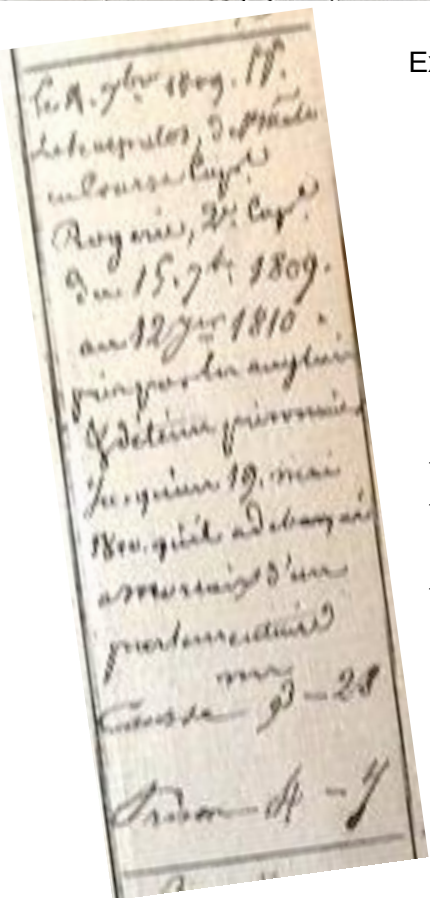 Ex
Le 8. 7bre 1809. ff.
de St Malo
en Course Capne
Rogerie, 2e. Cape
Du 15. 7bre 1809.
au 12 Jer 1810.
pris par les anglais
& détenu prisonnier
jusqu'au 19. mai
1810. qu'il a débarqué
a Morlaix d'un
parlementaire
Course 28
Prison 4 - 7